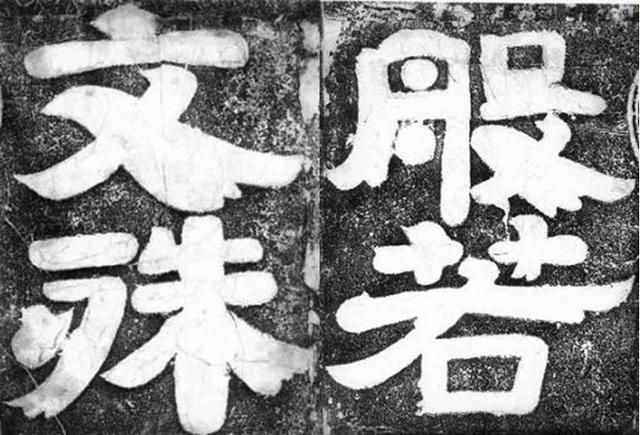 般若
文殊